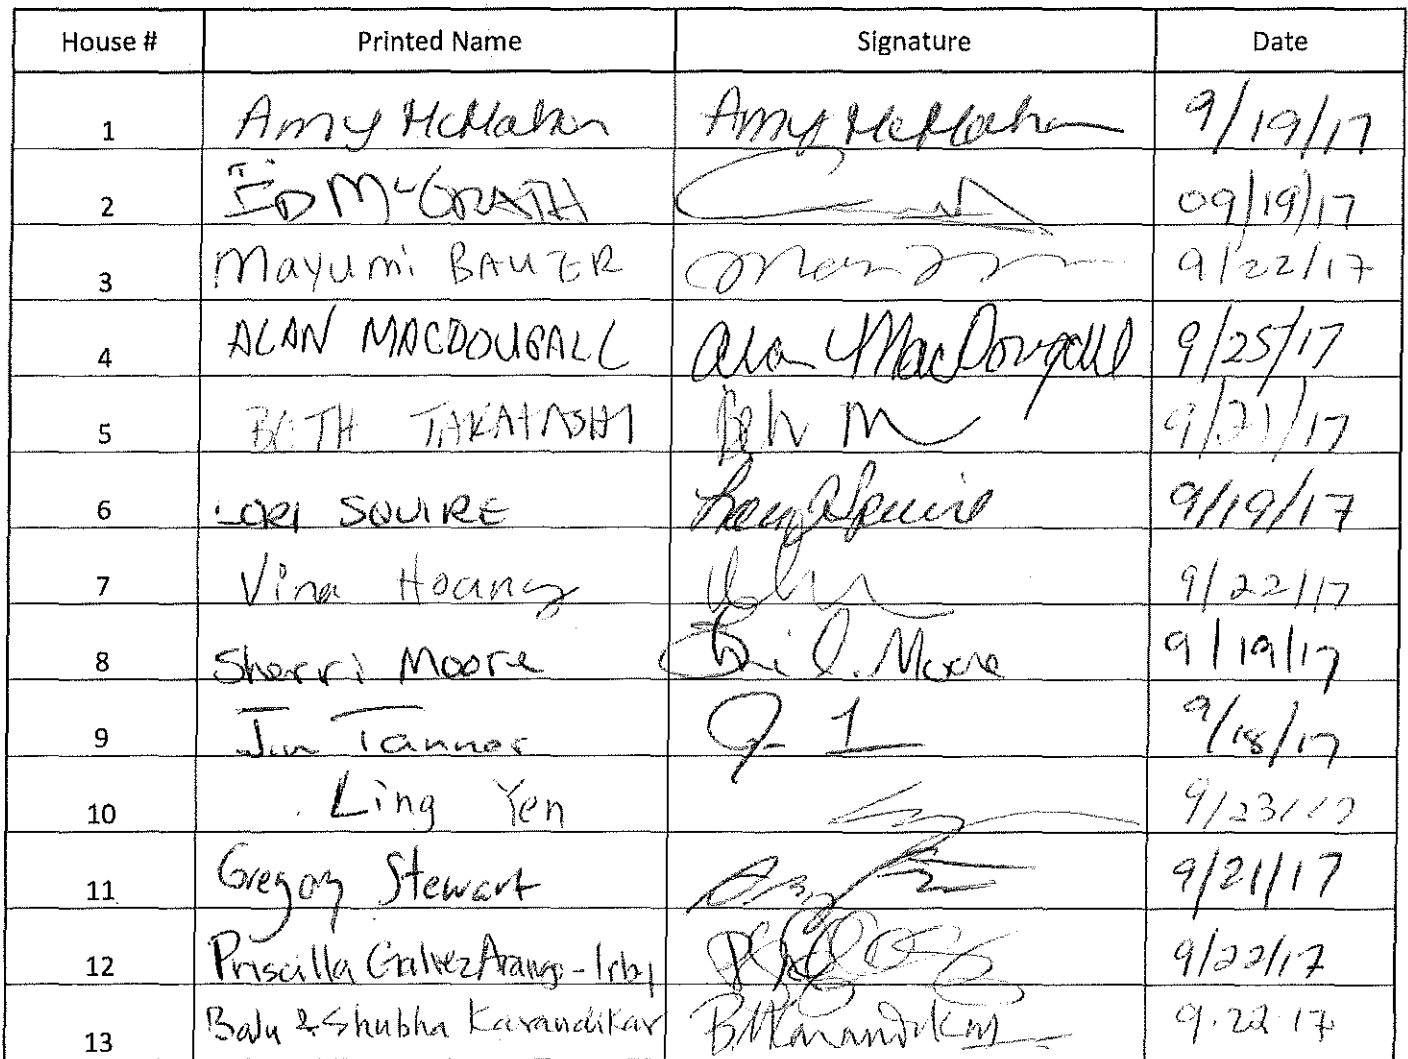 House # Printed Name Signature Date
1 Amy McMahon Amy McMahon 9/19/17
2 ED McGRATH 09/19/17
3 Mayumi BAUER 9/22/17
4 ALAN MACDOUGALL Alan MacDougall 9/25/17
5 BETH TAKAHASHI Beth 9/21/17
6 LORI SQUIRE Squire 9/19/17
7 Vina Hoang 9/22/17
8 Sherri Moore Moore 9/19/17
9 Tanner 9/18/17
10 Ling Yen 9/23/17
11 Gregory Stewart 9/21/17
12 Priscilla Galvez Arango-Irby 9/22/17
13 Balu & Shubha Karandikar B.M.Karandikar 9.22.17